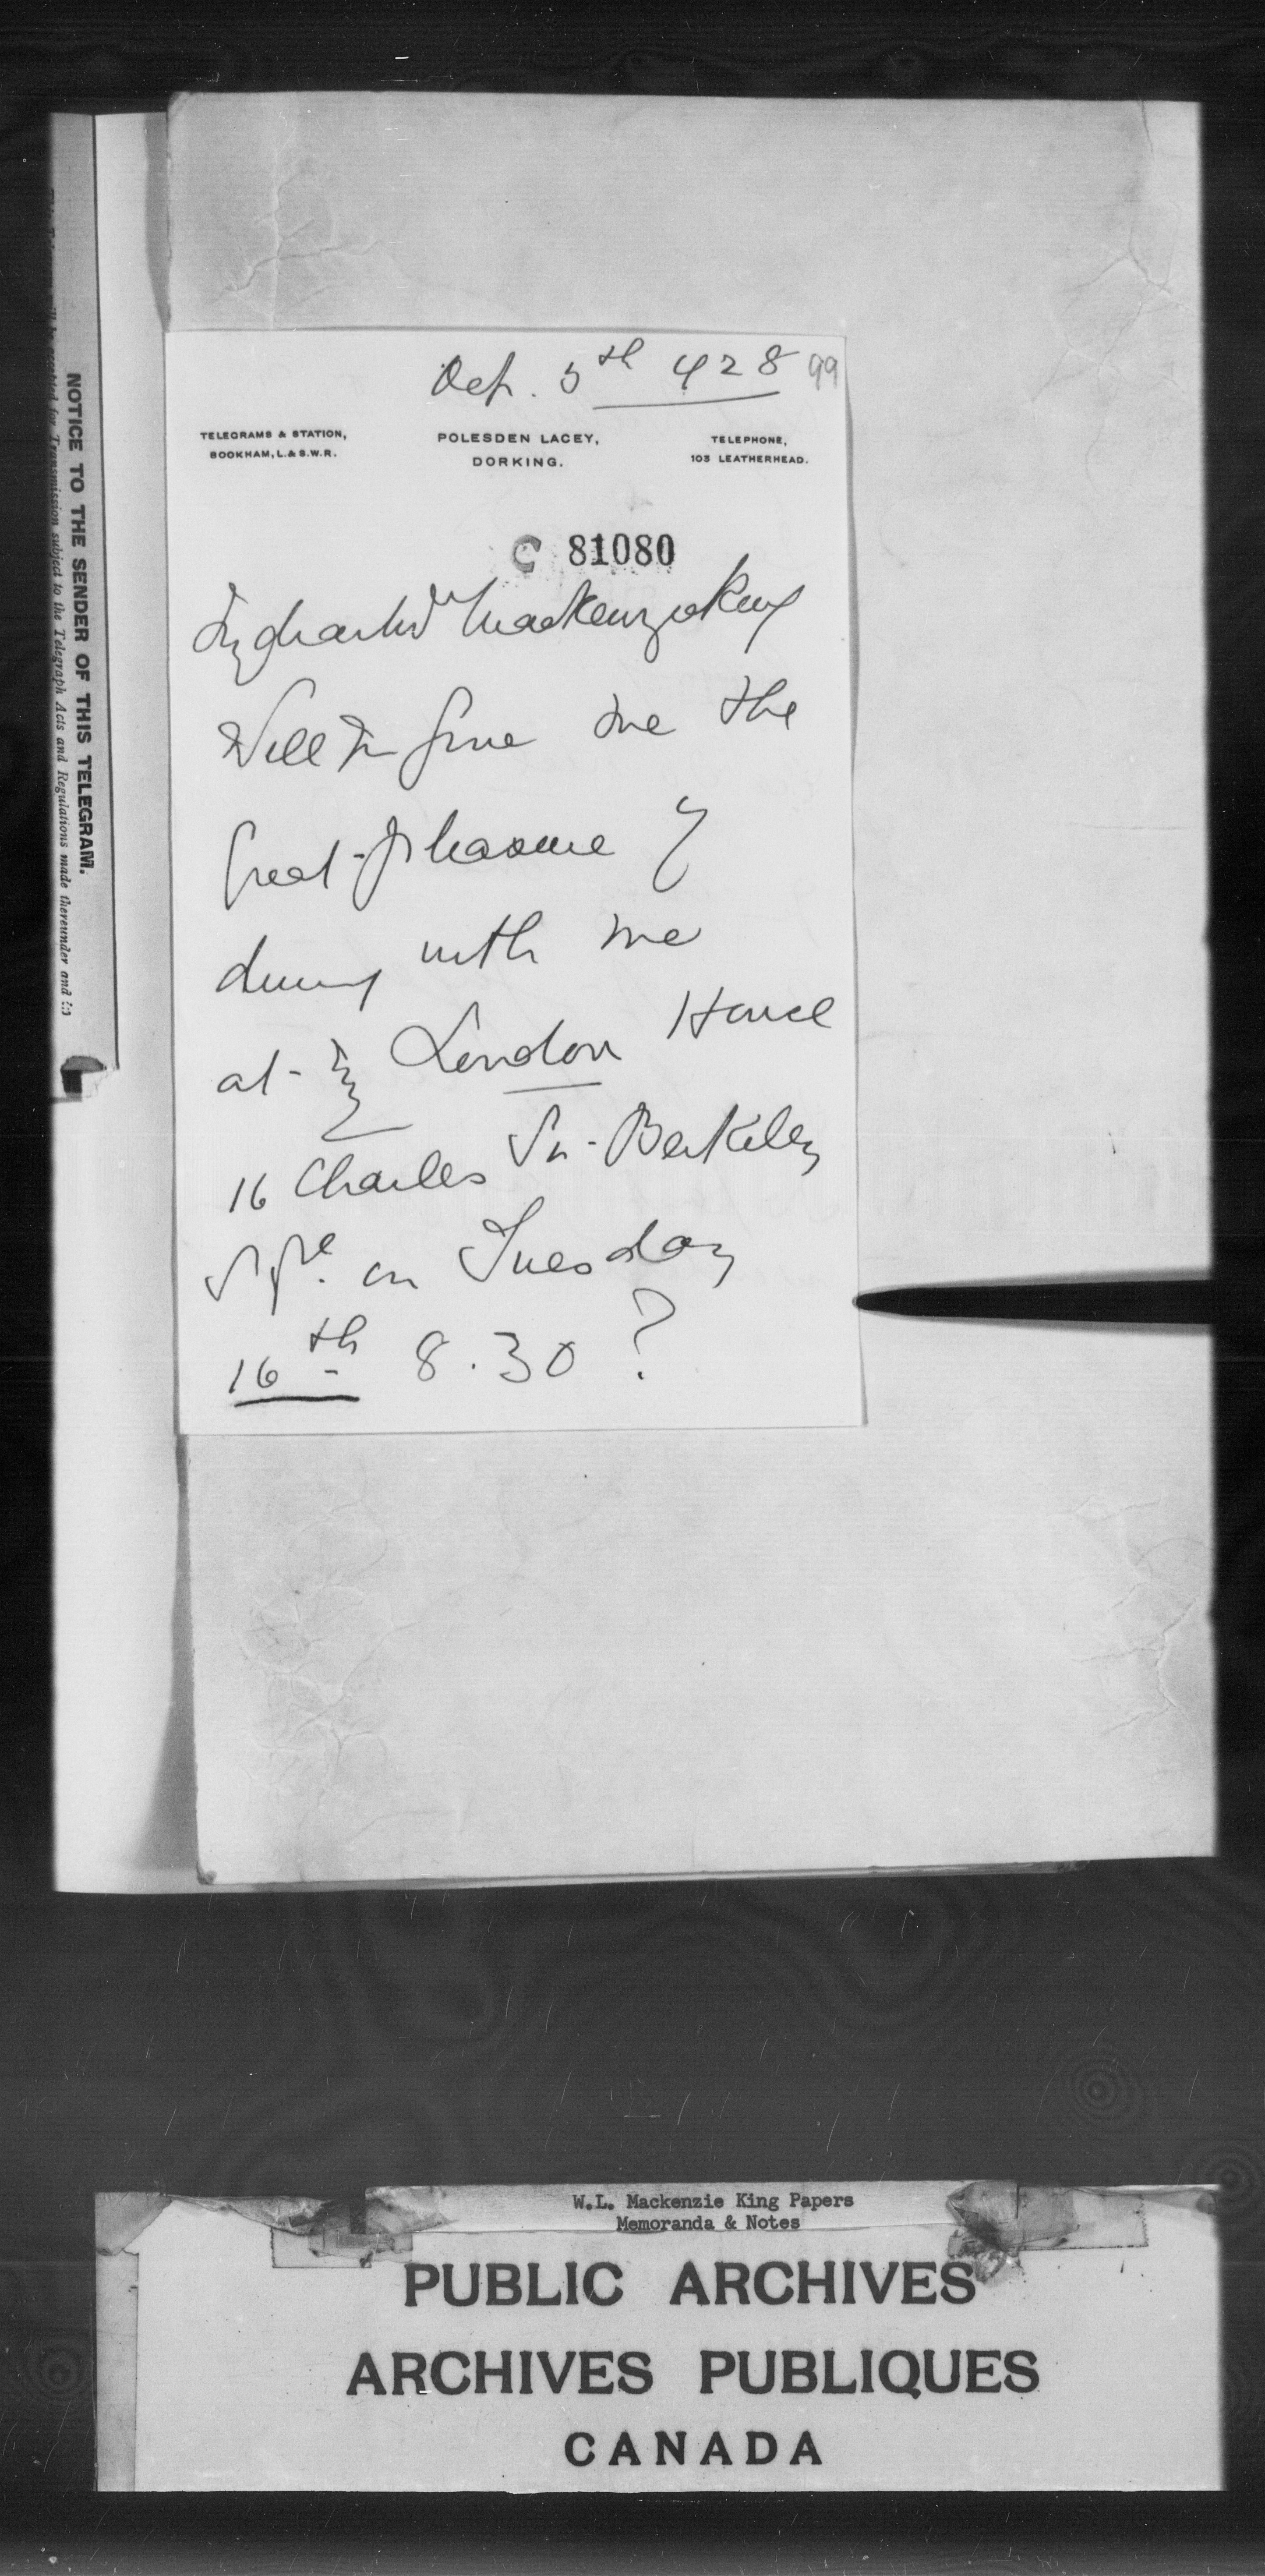 Oct. 5th 428 99
TELEGRAMS & STATION,
BOOKHAM, L. & S.W.R.
POLESDEN LACEY,
DORKING.
TELEPHONE,
103 LEATHERHEAD.
C 81080
My dear Mr Mackenzie King
Will you give me the
great pleasure of
dining with me
at my London House
16 Charles St. Berkeley
Sqre. on Tuesday
16th 8.30?
NOTICE TO THE SENDER OF THIS TELEGRAM.
for Transmission subject to the Telegraph Acts and Regulations made thereunder and
W.L. Mackenzie King Papers
Memoranda & Notes
PUBLIC ARCHIVES
ARCHIVES PUBLIQUES
CANADA